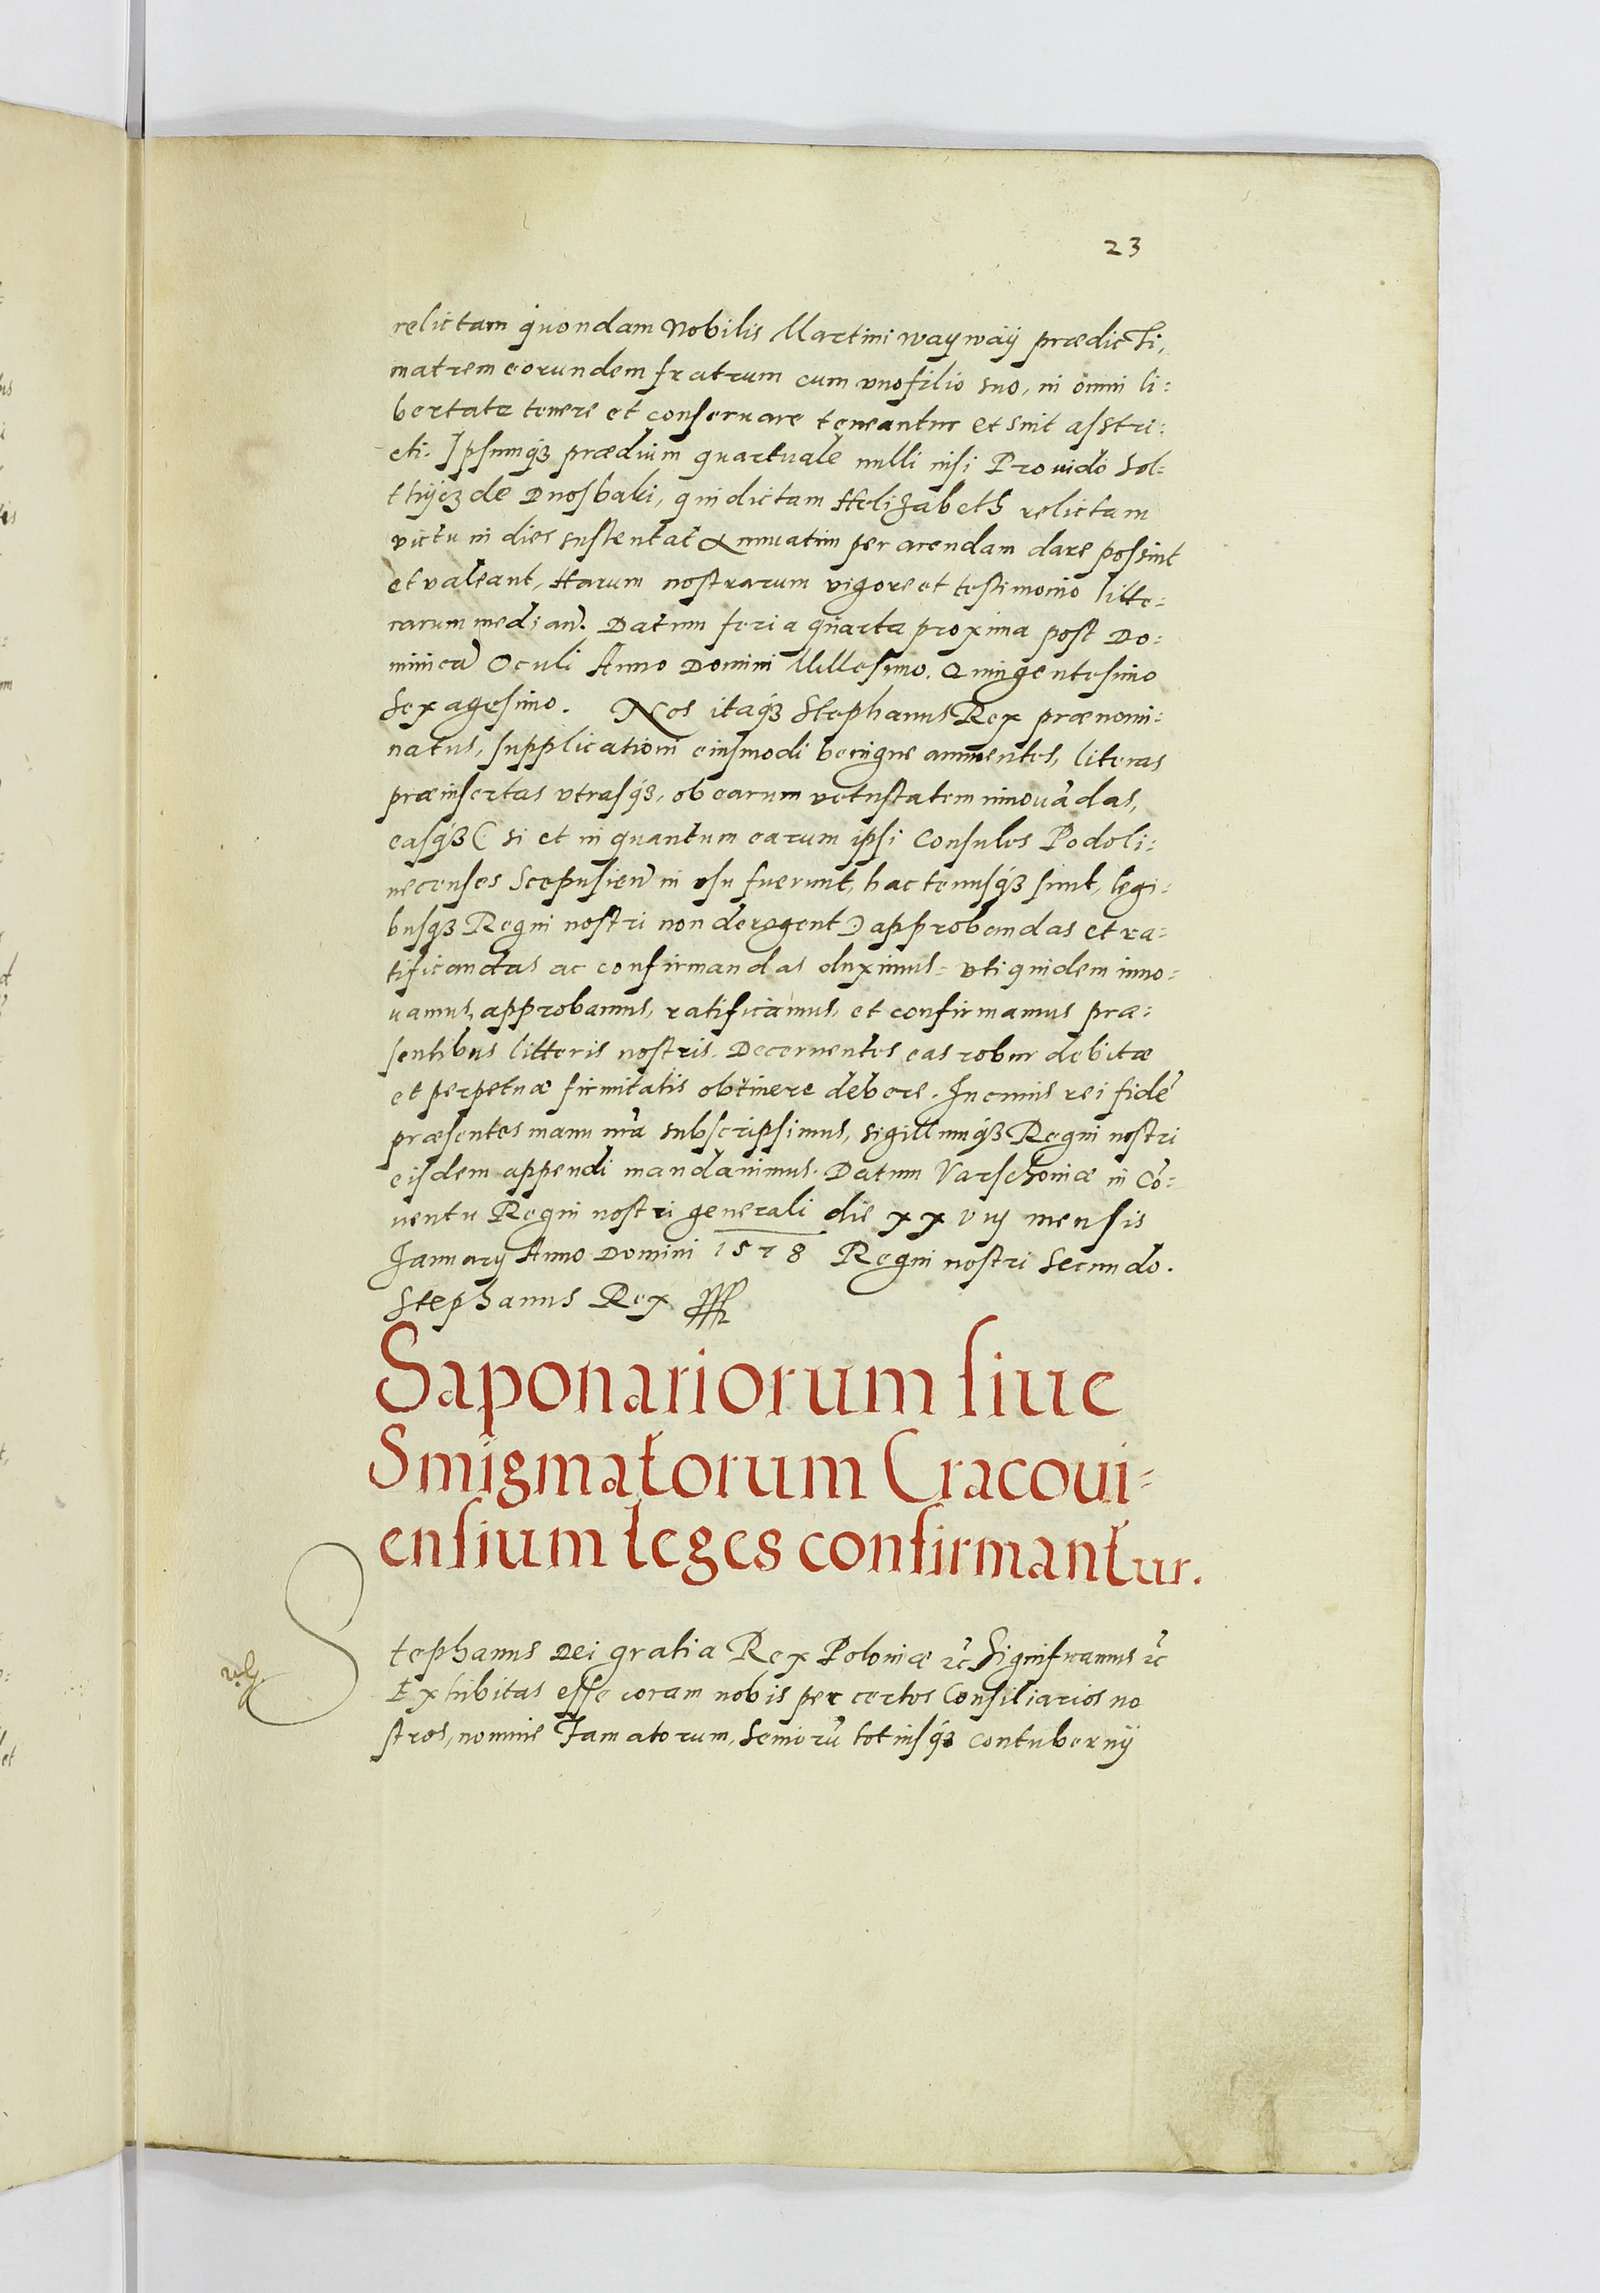 23
relictam quondam Nobilis Martini waywaÿ prædicti,
matrem eorundem fratrum cum vno filio suo, in omni li:
bertate tenere et conseruare teneantur et sint asstri:
cti. Ipsumq3 prædium quartuale nulli nisi Prouido Sol:
thÿcz de Dnosbaki, qui dictam Helizabeth relictam
victu in dies sustentat & annuatim per arendam dare possint
et valeant, Harum nostrarum vigore et testimonio litte:
rarum median̄. Datum feria quarta proxima post Do:
minicā Oculi Anno Domini Millesimo. Quingentesimo
Sexagesimo. Nos itaq3 Stephanus Rex prænomi:
natus, supplicationi eiusmodi benigne annuentes, literas
præinsertas vtrasq3, ob earum vetustatem innouādas,
easq3 (si et in quantum earum ipsi Consules Podoli:
necenses Scepusien̄ in vsu fuerunt, hactenusq3 sunt, legi:
busq3 Regni nostri non derogent) approbandas et ra:
tificandas ac confirmandas duximus: vti quidem inno:
uamus, approbamus, ratificamus, et confirmamus præ:
sentibus litteris nostris. Decernentes eas robur debitæ
et perpetuæ firmitatis obtinere debere. In cuius rei fidē
præsentes manu nr̄a subscripsimus, sigillumq3 Regni nostri
eisdem appendi mandauimus. Datum Varschouiæ in Cō:
uentu Regni nostri generali die xxvıȷ mensis
Januarij Anno Domini 1578 Regni nostri Secundo.
Stephanus Rex
Saponariorum siue
Smigmatorum Cracoui:
ensium leges confirmantur.
Stephanus Dei gratia Rex Poloniæ ꝛc̄ Significamus ꝛc̄
Exhibitas esse coram nobis per certos Consiliarios no
stros, nomine Famatorum, Seniorū totiusq3 contubernij